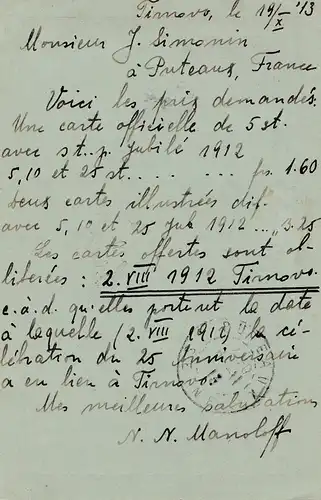 Tirnovo, le 19/X '13
Monsieur J. Simonin
à Puteaux, France
Voici les prix demandés.
Une carte officielle de 5 st.
avec st. p. Jubilé 1912
5, 10 et 25 st. . . . . . . frs. 1.60
Deux cartes illustrées dif.
avec 5, 10 et 25 Jub 1912 ... „ 3.25
Les cartes offertes sont ob
liberées : 2. VIII 1912 Tirnovo.
c. à. d. qu'elles portent la date
à laquelle (2. VIII 1912) la cé-
lébration du 25 anniversaire
a en lieu à Tirnovo.
Mes meilleures salutations
N. N. Manoloff